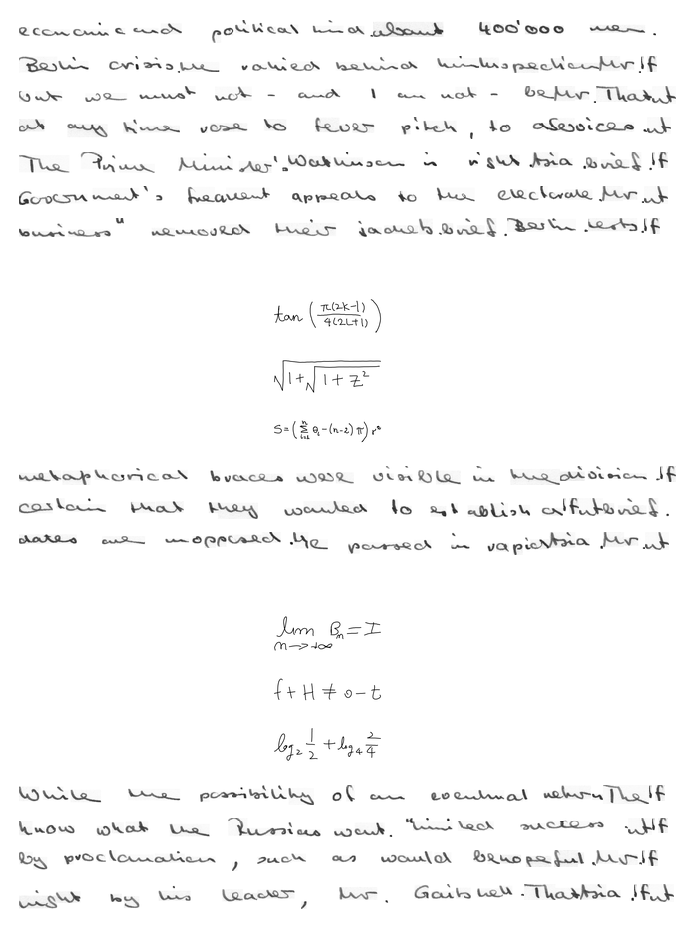 economic and political kind. about 400'000 men.
Berlin crisis. He rallied behind him. Inspection Mr. If
but we must not - and I am not - be Mr. That ut
at any time rose to fever pitch, to services. ut
The Prime Minister's. Watkinson is right. Asia. brief. If
Government's frequent appeals to the electorate. Mr. ut
business" removed their jackets. brief. Berlin. tests. If
tan (π(2k-1)/4(2L+1))
√(1+√(1+z²))
S=(∑_{i=1}^{n} θ_i-(n-2)π)r²
metaphorical braces were visible in the division. If
certain that they wanted to establish a If ut brief.
dates are unopposed. He passed in rapid Asia. Mr. ut
lim_{n→+∞} B_n=I
f+H≠0-t
log₂ 1/2 + log₄ 2/4
While the possibility of an eventual return The If
know what the Russians want. "limited success ut If
by proclamation, such as would be hopeful. Mr. If
night by his leader, Mr. Gaitskell. That Asia. If ut